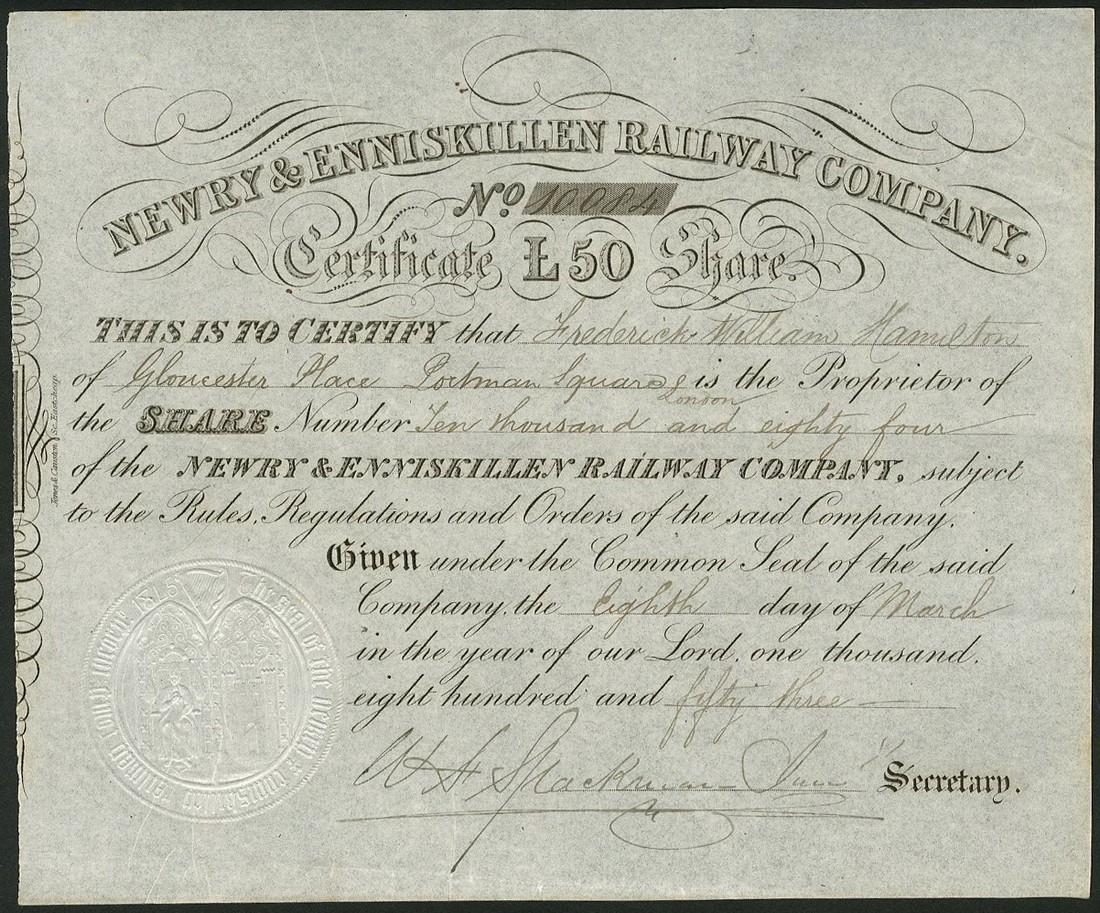 NEWRY & ENNISKILLEN RAILWAY COMPANY.
No. 10084
Certificate £50 Share.
THIS IS TO CERTIFY that Frederick William Hamilton
of Gloucester Place Portman Square is the Proprietor of
London
the SHARE Number Ten thousand and eighty four
of the NEWRY & ENNISKILLEN RAILWAY COMPANY, subject
to the Rules, Regulations and Orders of the said Company.
Given under the Common Seal of the said
Company, the Eighth day of March
in the year of our Lord, one thousand,
eight hundred and fifty three
Secretary.
The Seal of the Newry & Enniskillen Railway Company 1845
St. Eastcheap.